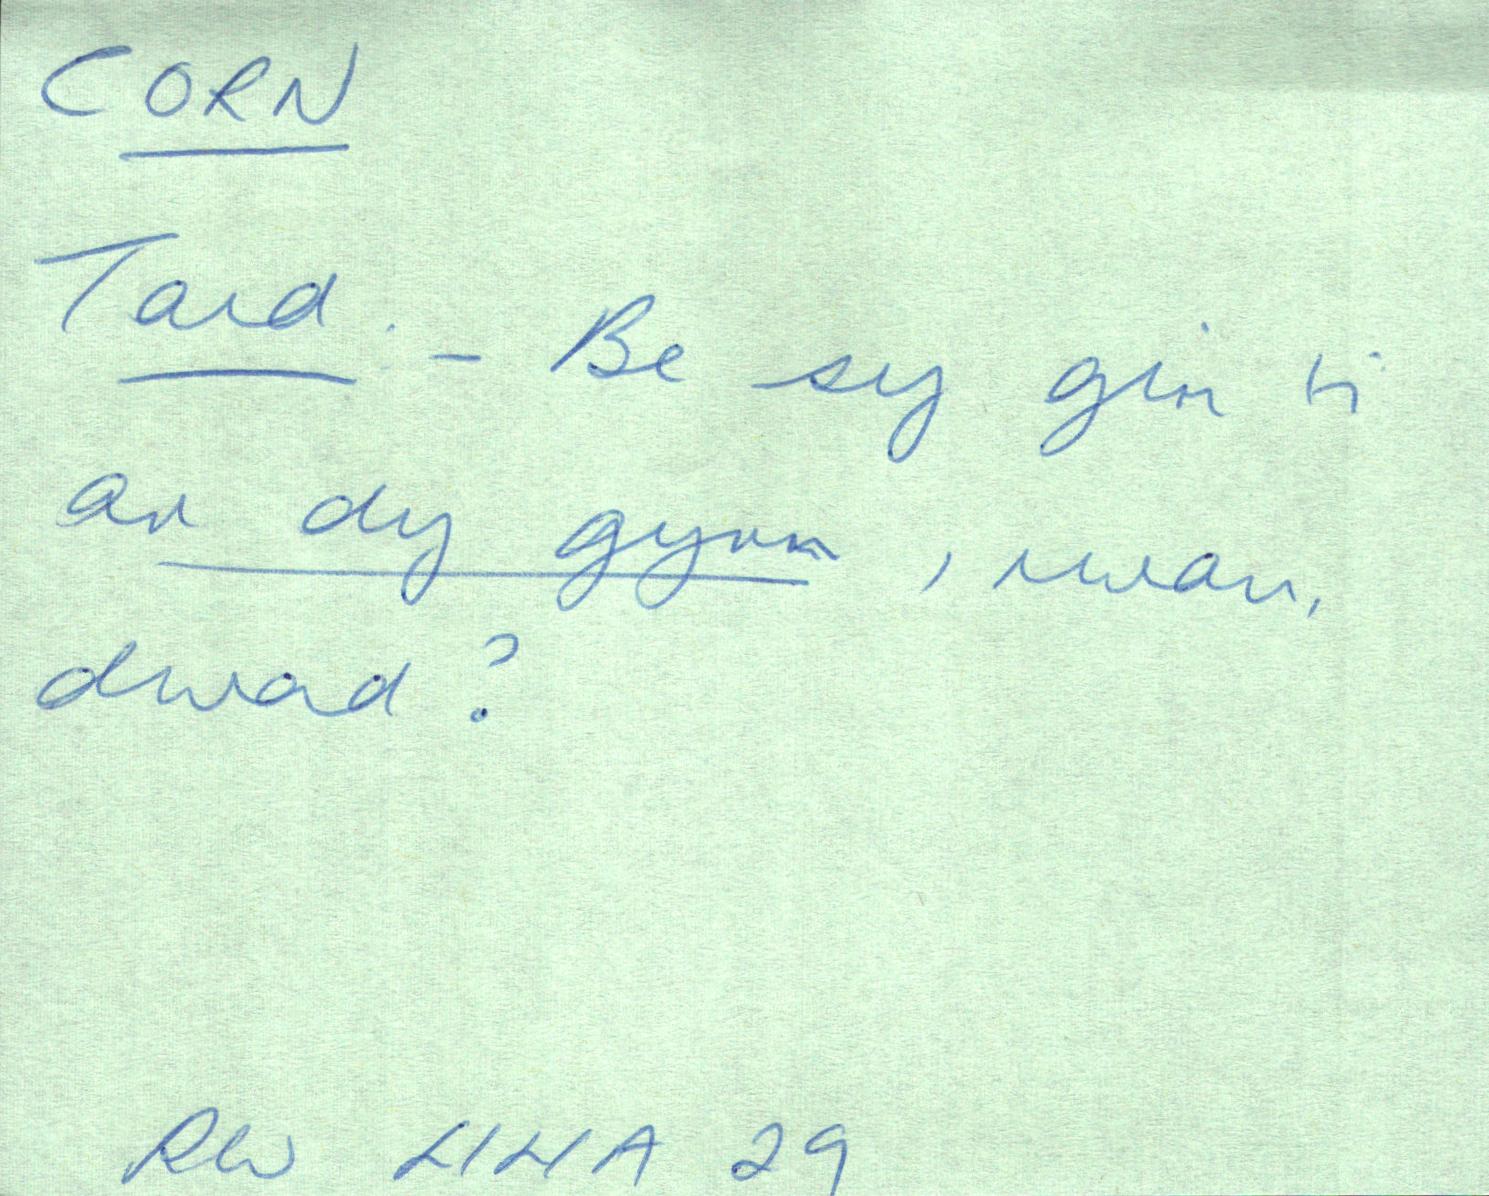 CORN
Taid. - Be sy gin ti
ar dy gyrn, rwan,
dwad?
RW LlHA 29